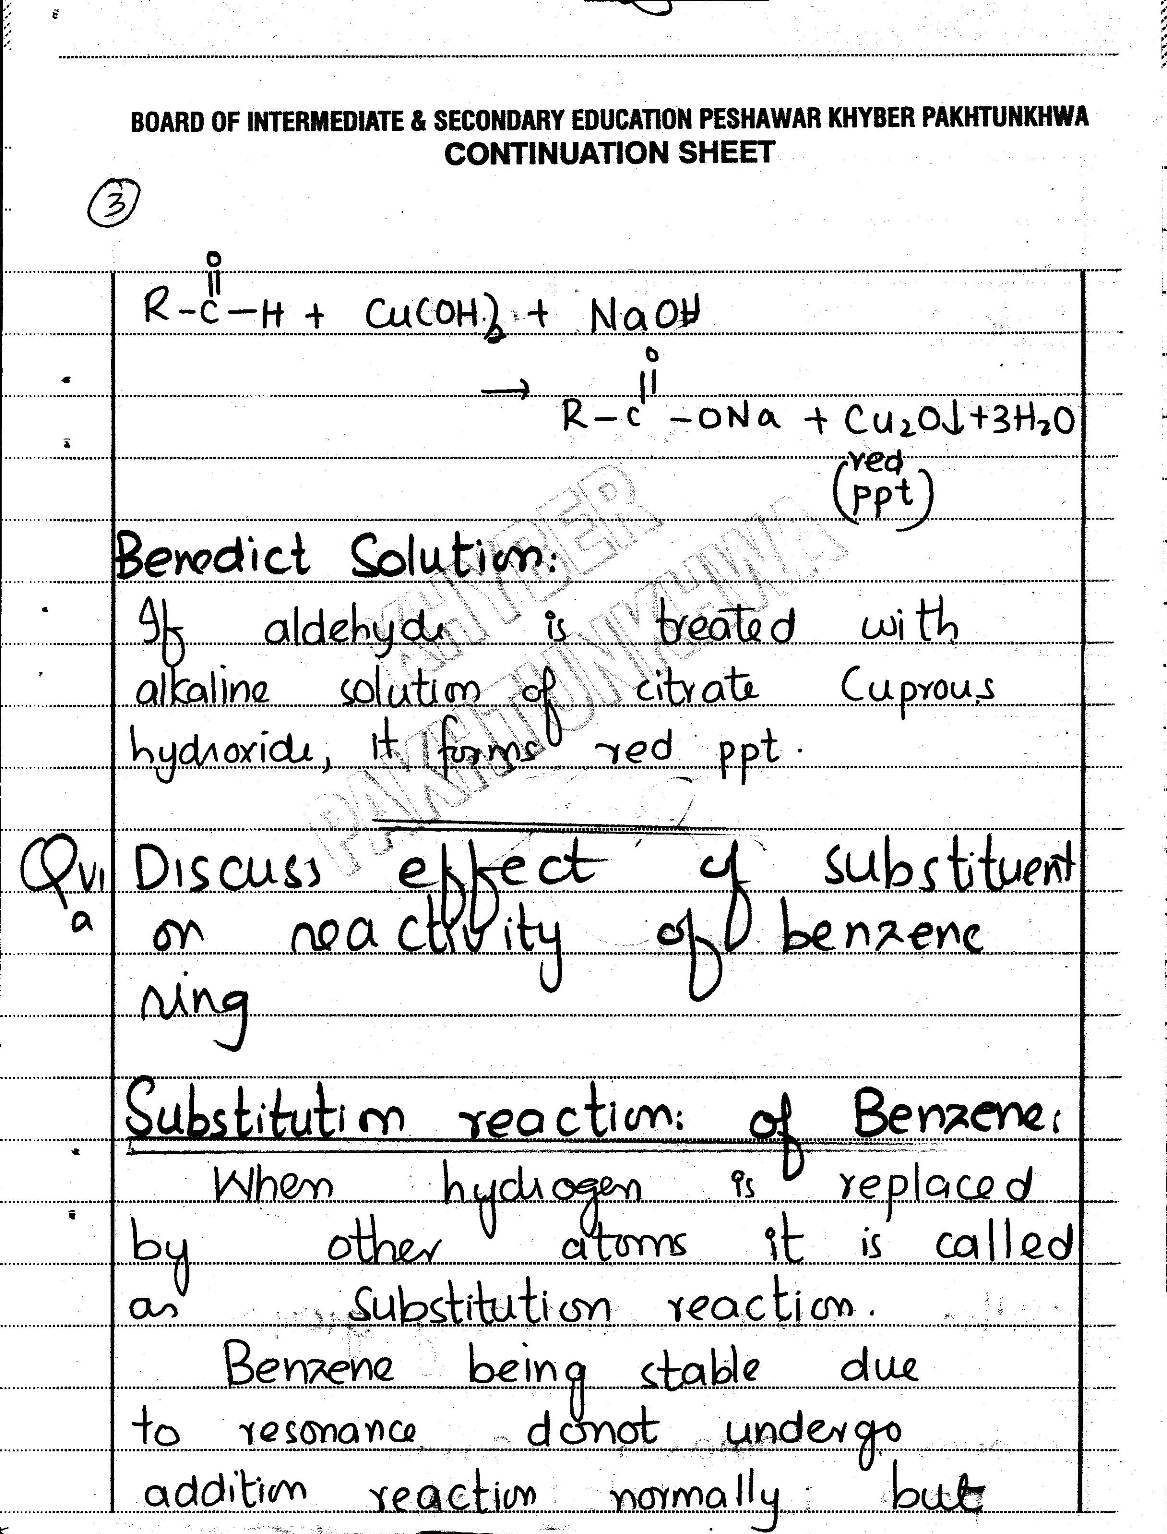 BOARD OF INTERMEDIATE & SECONDARY EDUCATION PESHAWAR KHYBER PAKHTUNKHWA
CONTINUATION SHEET
3
O
||
R-C-H + Cu(OH)2 + NaOH
O
→ ||
R-C-ONa + Cu2O↓+3H2O
(red
ppt)
KHYBER
PAKHTUNKHWA
Benedict Solution:
If aldehyde is treated with
alkaline solution of citrate Cuprous
hydroxide, it forms red ppt.
QVI Discuss effect of substituent
a on reactivity of benzene
ring
Substitution reaction: of Benzene:
When hydrogen is replaced
by other atoms it is called
as substitution reaction.
Benzene being stable due
to resonance donot undergo
addition reaction normally but